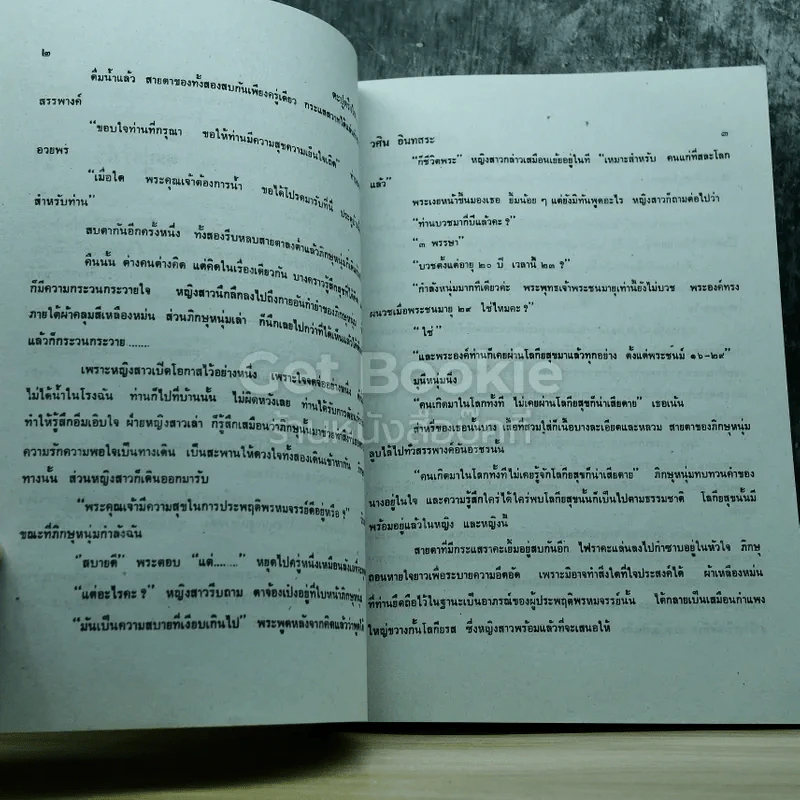 ๒
ดื่มน้ำแล้ว สายตาของทั้งสองสบกันเพียงครู่เดียว
สรรพางค์
“ขอบใจท่านที่กรุณา ขอให้ท่านมีความสุขความเย็นใจเถิด”
อวยพร
“เมื่อใด พระคุณเจ้าต้องการน้ำ ขอได้โปรดมารับที่นี่
สำหรับท่าน”
สบตากันอีกครั้งหนึ่ง ทั้งสองรีบหลบสายตาลงต่ำแล้วภิกษุหนุ่ม
คืนนั้น ต่างคนต่างคิด แต่คิดในเรื่องเดียวกัน บางคราวรู้สึก
ก็มีความกระวนกระวายใจ หญิงสาวนึกลึกลงไปถึงกายอันกำยำของภิกษุหนุ่ม
ภายใต้ผ้าคลุมสีเหลืองหม่น ส่วนภิกษุหนุ่มเล่า ก็นึกเลยไปกว่าที่ได้เห็น
แล้วก็กระวนกระวาย .......
เพราะหญิงสาวเปิดโอกาสไว้อย่างหนึ่ง เพราะใจจดจ่ออย่างหนึ่ง
ไม่ได้น้ำในโรงฉัน ท่านก็ไปที่บ้านนั้น ไม่ผิดหวังเลย ท่านได้รับการต้อนรับ
ทำให้รู้สึกอิ่มเอิบใจ ฝ่ายหญิงสาวเล่า ก็รู้สึกเสมือนว่าภิกษุนั้น
ความรักความพอใจเป็นทางเดิน เป็นสะพานให้ดวงใจทั้งสองเดินเข้าหากัน
ทางนั้น ส่วนหญิงสาวก็เดินออกมารับ
“พระคุณเจ้ามีความสุขในการประพฤติพรหมจรรย์ดีอยู่หรือ ?”
ขณะที่ภิกษุหนุ่มกำลังฉัน
“สบายดี” พระตอบ “แต่.......” หยุดไปครู่หนึ่งเหมือนลังเล
“แต่อะไรคะ ?” หญิงสาวรีบถาม ตาจ้องเป๋งอยู่ที่ใบหน้าภิกษุหนุ่ม
“มันเป็นความสบายที่เงียบเกินไป” พระพูดหลังจากคิดแล้วว่า
วศิน อินทสระ
๓
“ก็ชีวิตพระ” หญิงสาวกล่าวเสมือนเย้ยอยู่ในที “เหมาะสำหรับ คนแก่ที่สละโลก
แล้ว”
พระเงยหน้าขึ้นมองเธอ ยิ้มน้อย ๆ แต่ยังมิทันพูดอะไร หญิงสาวก็ถามต่อไปว่า
“ท่านบวชมากี่ปีแล้วคะ ?”
“๓ พรรษา”
“บวชตั้งแต่อายุ ๒๐ ปี เวลานี้ ๒๓ ?”
“กำลังหนุ่มมากทีเดียวค่ะ พระพุทธเจ้าพระชนมายุเท่านี้ยังไม่บวช พระองค์ทรง
ผนวชเมื่อพระชนมายุ ๒๙ ใช่ไหมคะ ?”
“ใช่”
“และพระองค์ท่านก็เคยผ่านโลกียสุขมาแล้วทุกอย่าง ตั้งแต่พระชนม์ ๑๖-๒๙”
มุนีหนุ่มนิ่ง
“คนเกิดมาในโลกทั้งที ไม่เคยผ่านโลกียสุขก็น่าเสียดาย” เธอเน้น
ส่าหรีของเธอนั้นบาง เสื้อที่สวมใส่ก็เนื้อบางละเอียดและหลวม สายตาของภิกษุหนุ่ม
ลูบไล้ไปทั่วสรรพางค์อันอรชรนั้น
“คนเกิดมาในโลกทั้งทีไม่เคยรู้จักโลกียสุขก็น่าเสียดาย” ภิกษุหนุ่มทบทวนคำของ
นางอยู่ในใจ และความรู้สึกใคร่ได้ใคร่พบโลกียสุขนั้นก็เป็นไปตามธรรมชาติ โลกียสุขนั้นมี
พร้อมอยู่แล้วในหญิง และหญิงนี้
สายตาที่มีกระแสราคะเยิ้มอยู่สบกันอีก ไฟราคะแล่นลงไปกำซาบอยู่ในหัวใจ ภิกษุ
ถอนหายใจยาวเพื่อระบายความอึดอัด เพราะมิอาจทำสิ่งใดที่ใจประสงค์ได้ ผ้าเหลืองหม่น
ที่ท่านยึดถือไว้ในฐานะเป็นอาภรณ์ของผู้ประพฤติพรหมจรรย์นั้น ได้กลายเป็นเสมือนกำแพง
ใหญ่ขวางกั้นโลกียรส ซึ่งหญิงสาวพร้อมแล้วที่จะเสนอให้
Get Bookie
ร้านหนังสือบุ๊คกี้